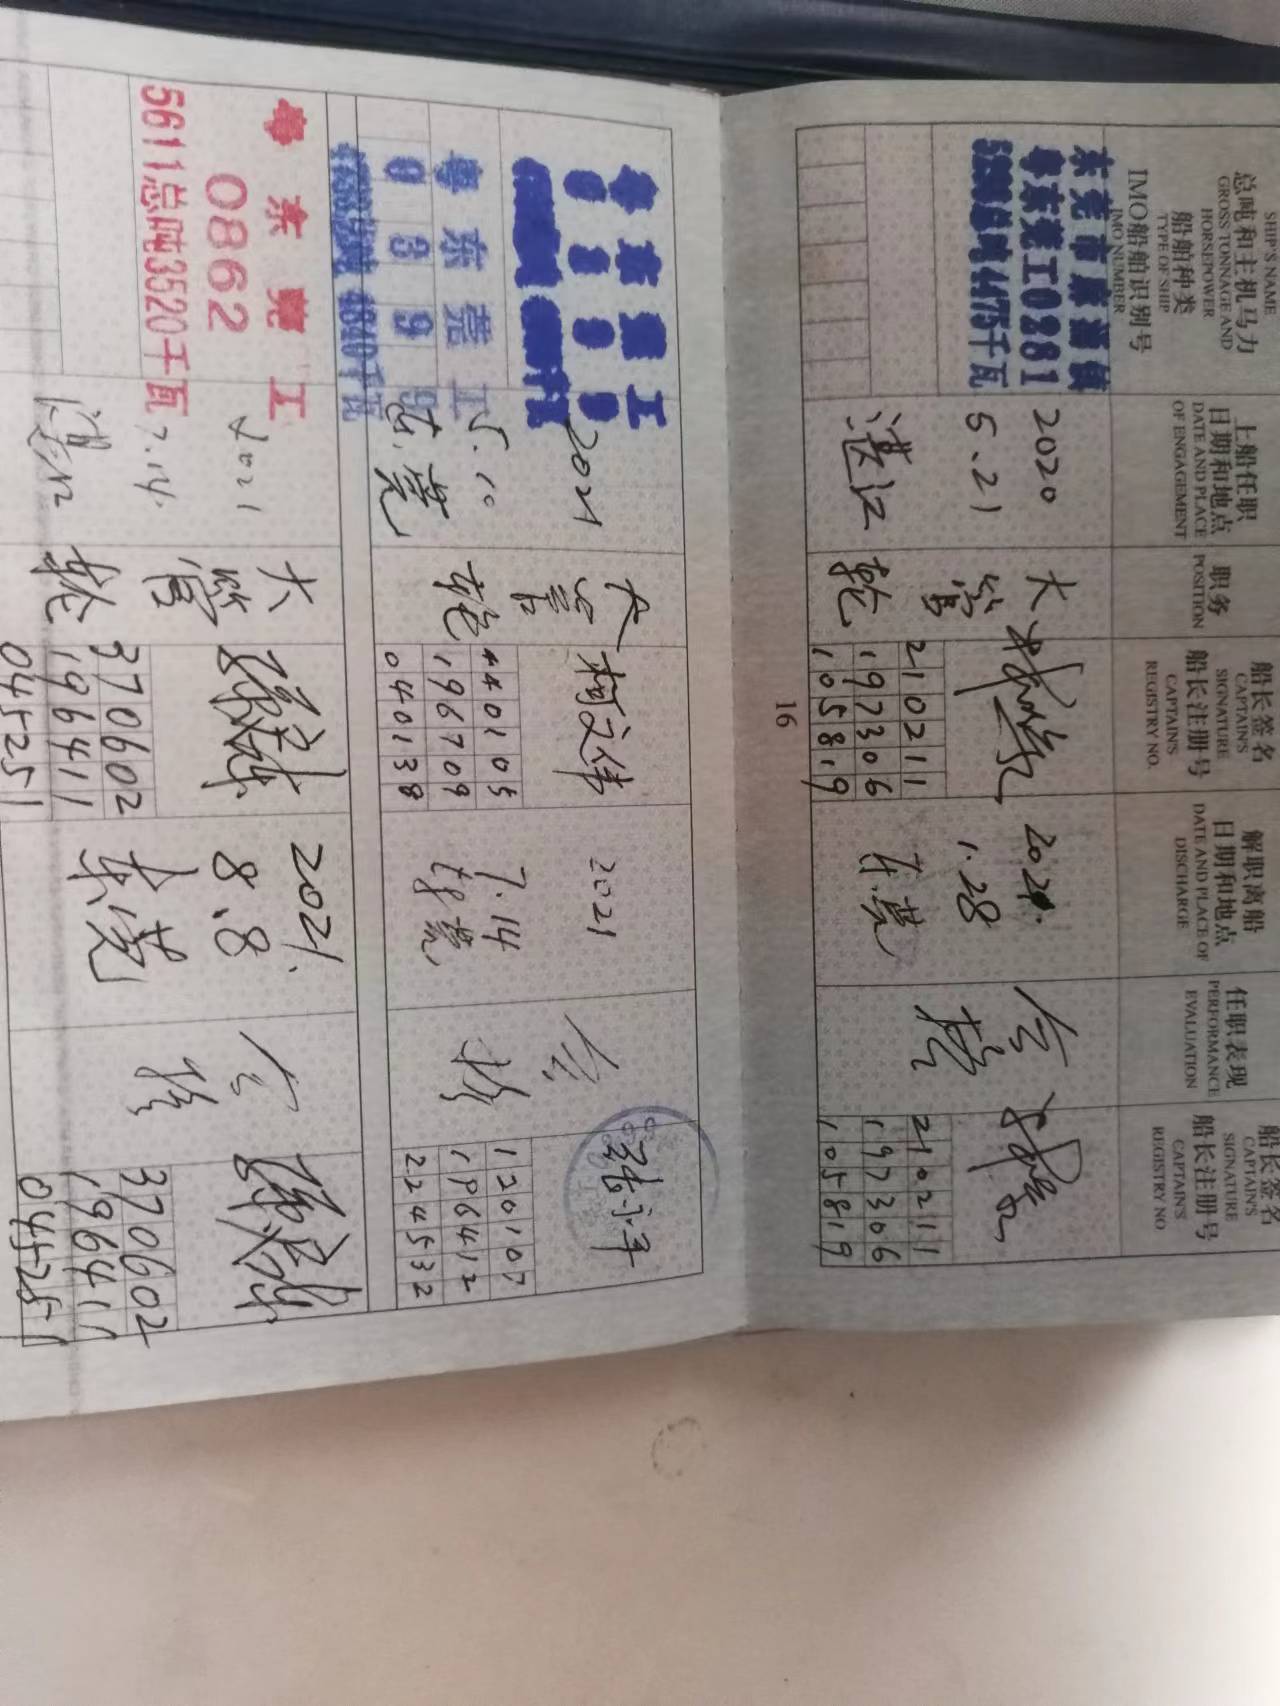 SHIP'S NAME
总吨和主机马力
GROSS TONNAGE AND
HORSEPOWER
船舶种类
TYPE OF SHIP
IMO船舶识别号
IMO NUMBER
上船任职
日期和地点
DATE AND PLACE
OF ENGAGEMENT
职务
POSITION
船长签名
CAPTAIN'S
SIGNATURE
船长注册号
CAPTAIN'S
REGISTRY NO.
解职离船
日期和地点
DATE AND PLACE OF
DISCHARGE
任职表现
PERFORMANCE
EVALUATION
船长签名
CAPTAIN'S
SIGNATURE
船长注册号
CAPTAIN'S
REGISTRY NO
东莞市麻涌镇
粤东莞工0281
4475千瓦
2020
5.21
湛江
大
管
轮
210211
197306
105819
2021.
1.28
东莞
合
格
210211
197306
105819
16
粤东莞工
粤东莞工
2021
5.10
东莞
大
管
轮
柯文伟
440105
196709
040138
2021
7.14
东莞
合
格
120107
196412
224532
粤东莞工
0862
5611总吨3520千瓦
2021
7.14.
湛江
大
管
轮
370602
196411
045251
2021.
8.8
东莞
合
格
370602
196411
045251